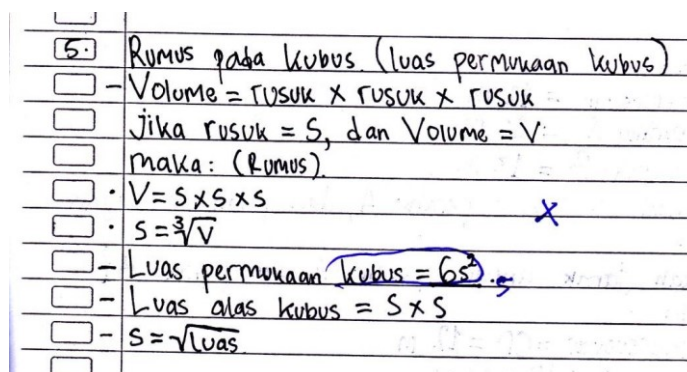 5. Rumus pada kubus. (luas permukaan kubus)
- Volume = rusuk x rusuk x rusuk
jika rusuk = S, dan Volume = V.
maka: (Rumus).
• V = S x S x S
X
• S = ³√V
- Luas permukaan kubus = 6s²
- Luas alas kubus = S x S
- S = √luas